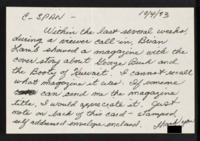 C-SPAN - 10/4/93
Within the last several weeks,
during a viewer call-in, Brian
Lamb showed a magazine with the
cover story about George Bush and
the Booty of Kuwait. I cannot recall
what magazine it was. If someone
can send me the magazine
title, I would appreciate it. Just
note on back of this card - stamped,
self addressed envelope enclosed. Thank you